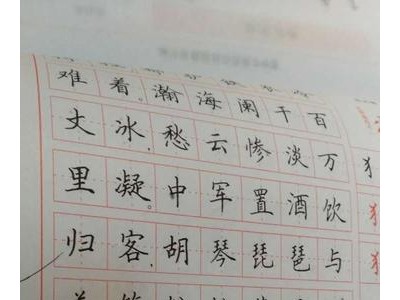 难着。瀚海阑干百
丈冰，愁云惨淡万
里凝。中军置酒饮
归客，胡琴琵琶与